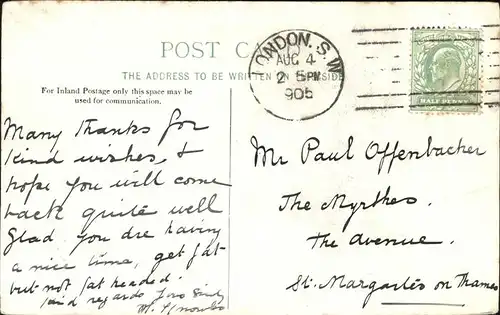 POST CA
LONDON. S.W
AUG 4
2 5 PM
905
THE ADDRESS TO BE WRITTEN ON THIS SIDE
HALF PENNY
For Inland Postage only this space may be
used for communication.
Many thanks for
kind wishes, &
hope you will come
back quite well
Glad you are having
a nice time, get fat
but not fat headed.
kind regards Yrs
Mr Paul Offenbacher
The Myrthes.
The Avenue.
St. Margartes on Thames